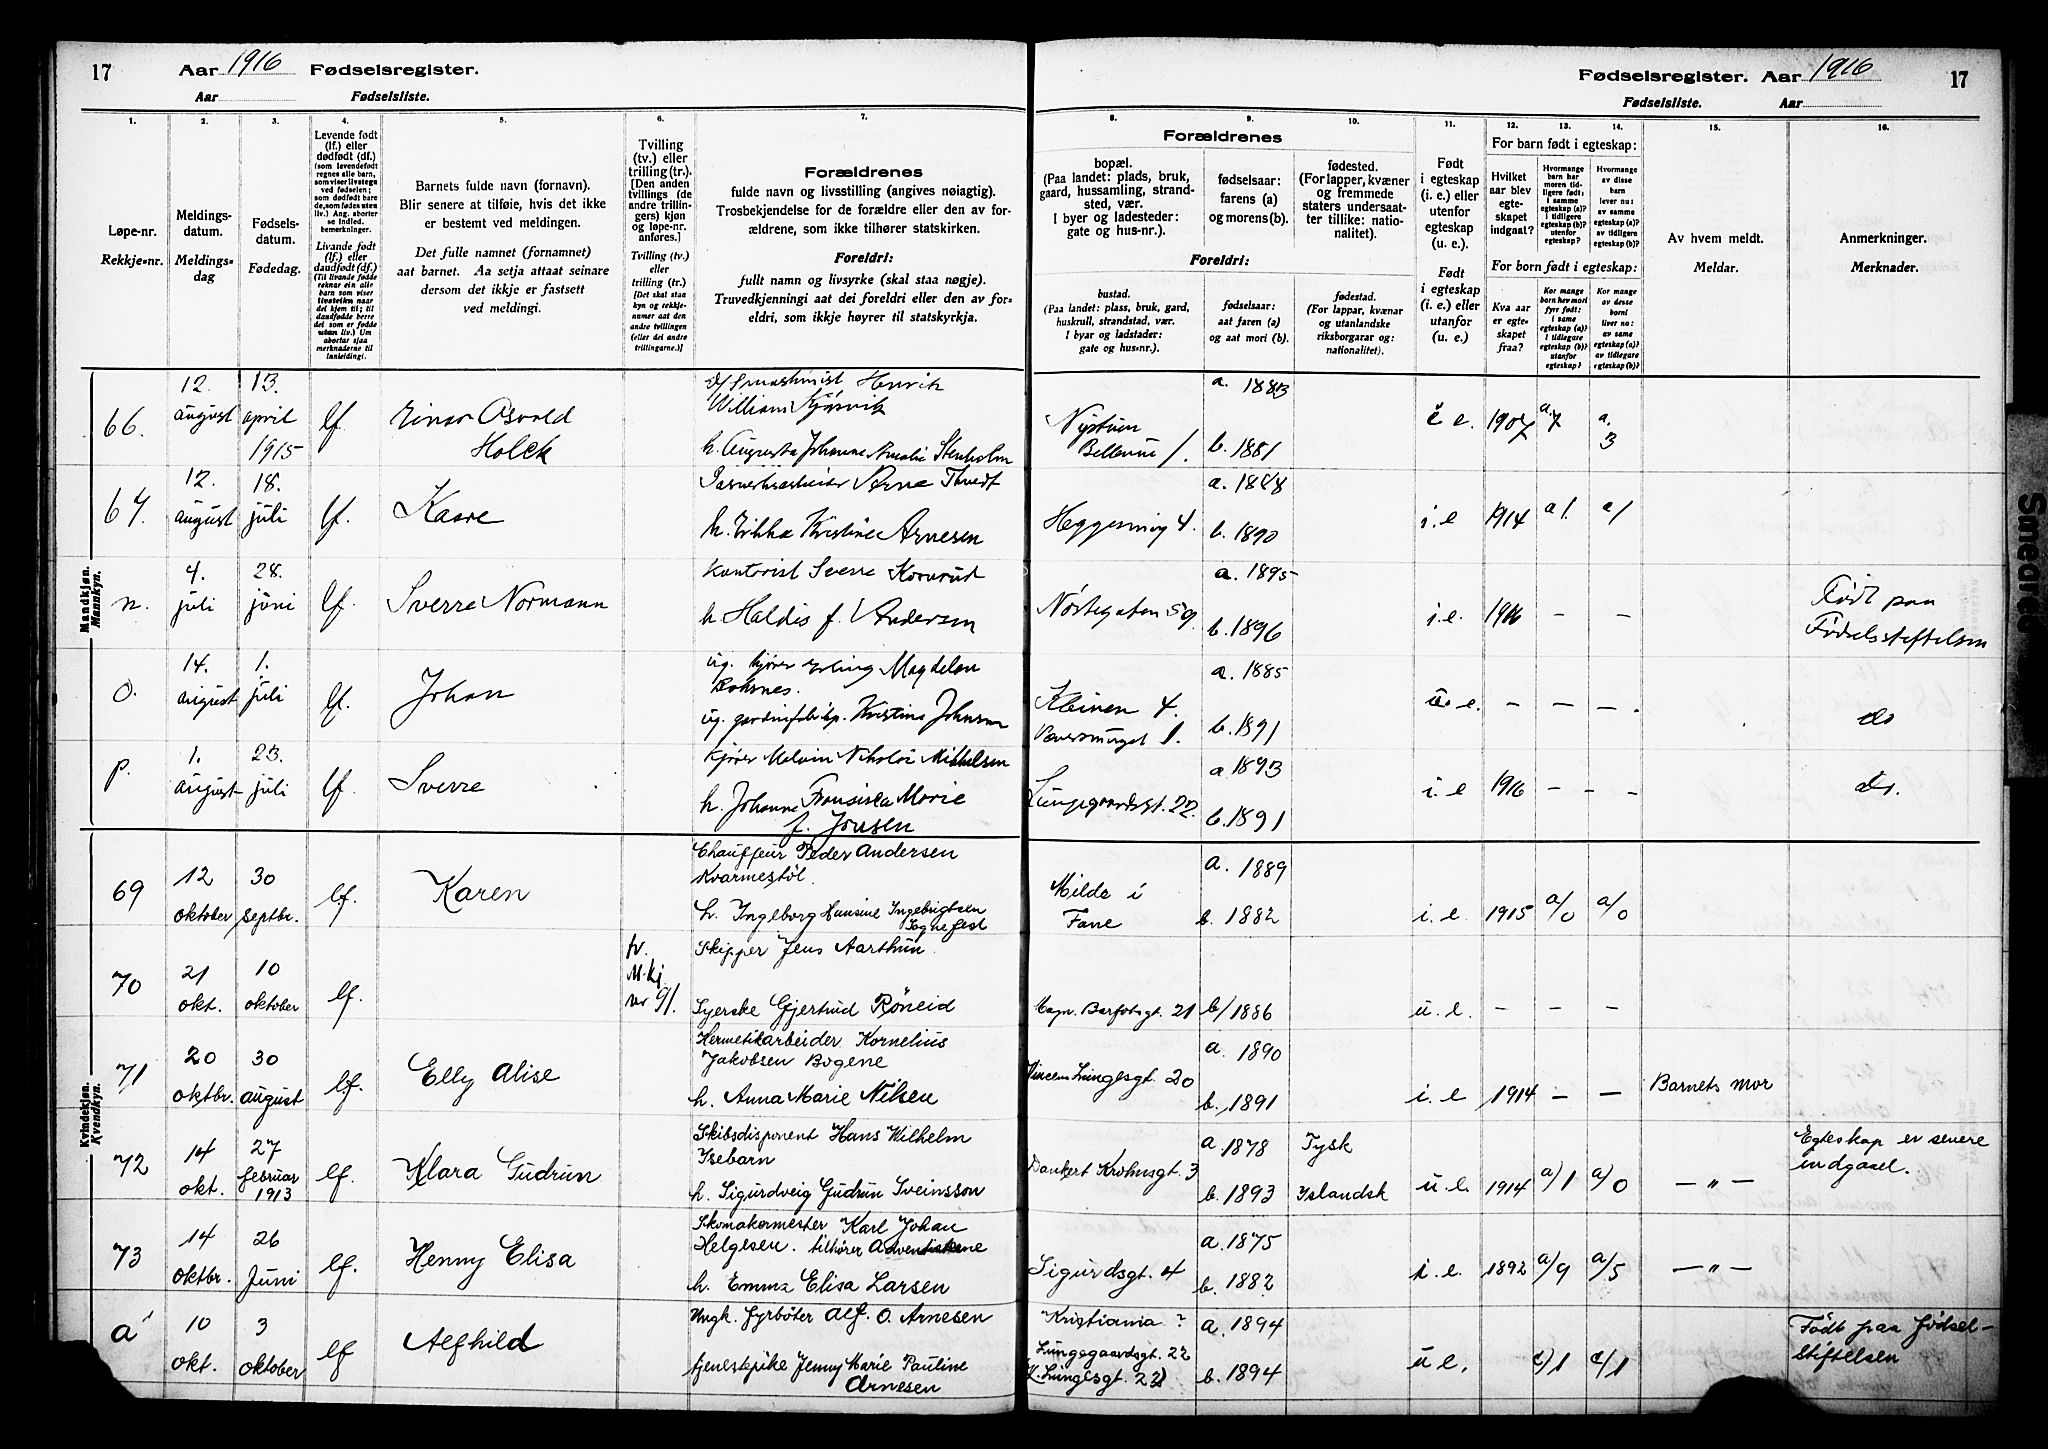 17 Aar 1916 Fødselsregister.
Aar Fødselsliste.
Fødselsregister. Aar 1916 17
Fødselsliste. Aar
1. 2. 3. 4. 5. 6. 7. 8. 9. 10. 11. 12. 13. 14. 15. 16.
Løpe-nr.
Rekkje-nr.
Meldings-
datum.
Meldings-
dag
Fødsels-
datum.
Fødedag.
Levende født
(lf.) eller
dødfødt (df.)
(som levendefødt
regnes alle barn,
som viser livstegn
ved fødselen;
som dødfødt bare
de, som fødes uten
liv.) Ang. aborter
se indled.
bemerkninger.
Livande født
(lf.) eller
daudfødt (df.)
(Til livande fødde
reknar ein alle
barn som viser
livsteikn naar
dei kjem til; til
daudfødde berre
dei som er fødde
utan liv.) Um
abortar sjaa
merknaderne til
innleidingi.
Barnets fulde navn (fornavn).
Blir senere at tilføie, hvis det ikke
er bestemt ved meldingen.
Det fulle namnet (fornamnet)
aat barnet. Aa setja attaat seinare
dersom det ikkje er fastsett
ved meldingi.
Tvilling
(tv.) eller
trilling (tr.)
[Den anden
tvillings (de
andre trillin-
gers) kjøn
og løpe-nr.
anføres.]
Tvilling (tv.)
eller
trilling (tr.)
[Det skal staa
kyn og rekkje-
numer aat den
andre tvillingen
(eller dei andre
trillingarne.)]
Forældrenes
fulde navn og livsstilling (angives nøiagtig).
Trosbekjendelse for de forældre eller den av for-
ældrene, som ikke tilhører statskirken.
Foreldri:
fullt namn og livsyrke (skal staa nøgje).
Truvedkjenningi aat dei foreldri eller den av for-
eldri, som ikkje høyrer til statskyrkja.
Forældrenes
bopæl.
(Paa landet: plads, bruk,
gaard, hussamling, strand-
sted, vær.
I byer og ladesteder:
gate og hus-nr.).
fødselsaar:
farens (a)
og morens (b).
fødested.
(For lapper, kvæner
og fremmede
staters undersaat-
ter tillike: natio-
nalitet).
Foreldri:
bustad.
(Paa landet: plass, bruk, gard,
huskrull, strandstad, vær.
I byar og ladstader:
gate og hus-nr.).
fødselsaar:
aat faren (a)
og aat mori (b).
fødestad.
(For lappar, kvænar
og utanlandske
riksborgarar og:
nationalitet).
Født
i egteskap
(i. e.) eller
utenfor
egteskap
(u. e.).
Født
i egteskap
(i. e.) eller
utanfor
(u. e.).
For barn født i egteskap:
Hvilket
aar blev
egte-
skapet
indgaat?
Hvormange
barn har
moren tid-
ligere født:
i samme
egteskap (a)?
i tidligere
egteskap (b)?
utenfor
egteskap?
Hvormange
av disse
barn
lever nu:
av samme
egteskap (a)?
av tidligere
egteskap (b)?
For born født i egteskap:
Kva aar
er egte-
skapet
fraa?
Kor mange
born hev mori
fyrr født:
i same
egteskap (a)?
i tidlegare
egteskap (b)?
utanfor
egteskap?
Kor mange
av desse
borni
liver no:
av same
egteskap (a)?
av tidlegare
egteskap (b)?
Av hvem meldt.
Meldar.
Anmerkninger.
Merknader.
Mandkjøn.
Mannkyn.
66. 12. august 13. april 1915 lf. Einar Osvald Holck
Henrik
William Kjørvik
h. Augusta Johanne Amalie Stenholm
Nystuen Bellevue 1. a. 1883 b. 1881 i e. 1907 a. 7 a. 3
67. 12. august 18. juli lf. Kaare
Arne Thvedt
h. Erikka Kristine Arnesen
Heggesmug 4. a. 1888 b. 1890 i. e 1914 a 1. a 1
n. 4. juli 28. juni lf. Sverre Normann
Kontorist Sverre
h Haldis f. Andersen
Nøstegaten 59. a. 1895 b. 1896 i. e. 1916 — — Født paa Fødselsstiftelsen
O. 14. august 1. juli lf. Johan
ug. kjører Erling Magdelon
ug. Kristine Johnsen
Kleiven 4. a. 1885 b. 1891 u. e. — — — do
p. 1. august 23. juli lf. Sverre
kjører Melvin Nikolai Mikkelsen
h. Johanne Fransiska Marie
f. Jonsen
Lungegaardsgt. 22. a 1893 b. 1891 i. e 1916 — — do.
Kvindekjøn.
Kvendkyn.
69 12 oktober 30 septbr. lf. Karen
Chauffeur Peder Andersen
Kvarmestøl.
h. Ingeborg Hansine Ingebrigtsen
Sognefest
Milde i Fane a. 1889 b. 1882 i. e. 1915 a/0 a/0
70 21 okt. 10 oktober lf. tv. M.kj. nr 91.
Skipper Jens Aarthun
Syerske Gjertrud Røneid
Magn. Barfotsgt. 21 b/ 1886 u. e. — — —
71 20 oktbr. 30 august lf. Elly Alise
Hermetikarbeider Kornelius
Jakobsen Bogene
h. Anna Marie Nilsen
Vincens Lungesgt. 20 a. 1890 b. 1891 i. e 1914 — — Barnets mor
72 14 okt. 27 februar 1913 lf. Klara Gudrun
Skibsdisponent Hans Wilhelm
Isebarn
h. Sigurdveig Gudrun Sveinsson
Dankert Krohnsgt. 3 a 1878 Tysk b. 1893 Islandsk u. e. 1914 a/1 a/0 — „ — Egteskap er senere indgaaet.
73 14 oktbr. 26 Juni lf. Henny Elisa
Skomakermester Karl Johan
Helgesen. tilhører Adventistene
h. Emma Elisa Larsen
Sigurdsgt. 4 a. 1875 b. 1882 i. e. 1892 a/9 a/5 — „ —
a' 10 okt. 3 oktober lf Alfhild
Ungk. Fyrbøter Alf. O. Arnesen
tjenestepike Jenny Marie Pauline
Arnesen
Kristiania ? a. 1894
Lungegaardsgt. 22
V. Lungesgt. 23 b. 1894 u e. c/1 c/1 Født paa Fødsel-
stiftelsen